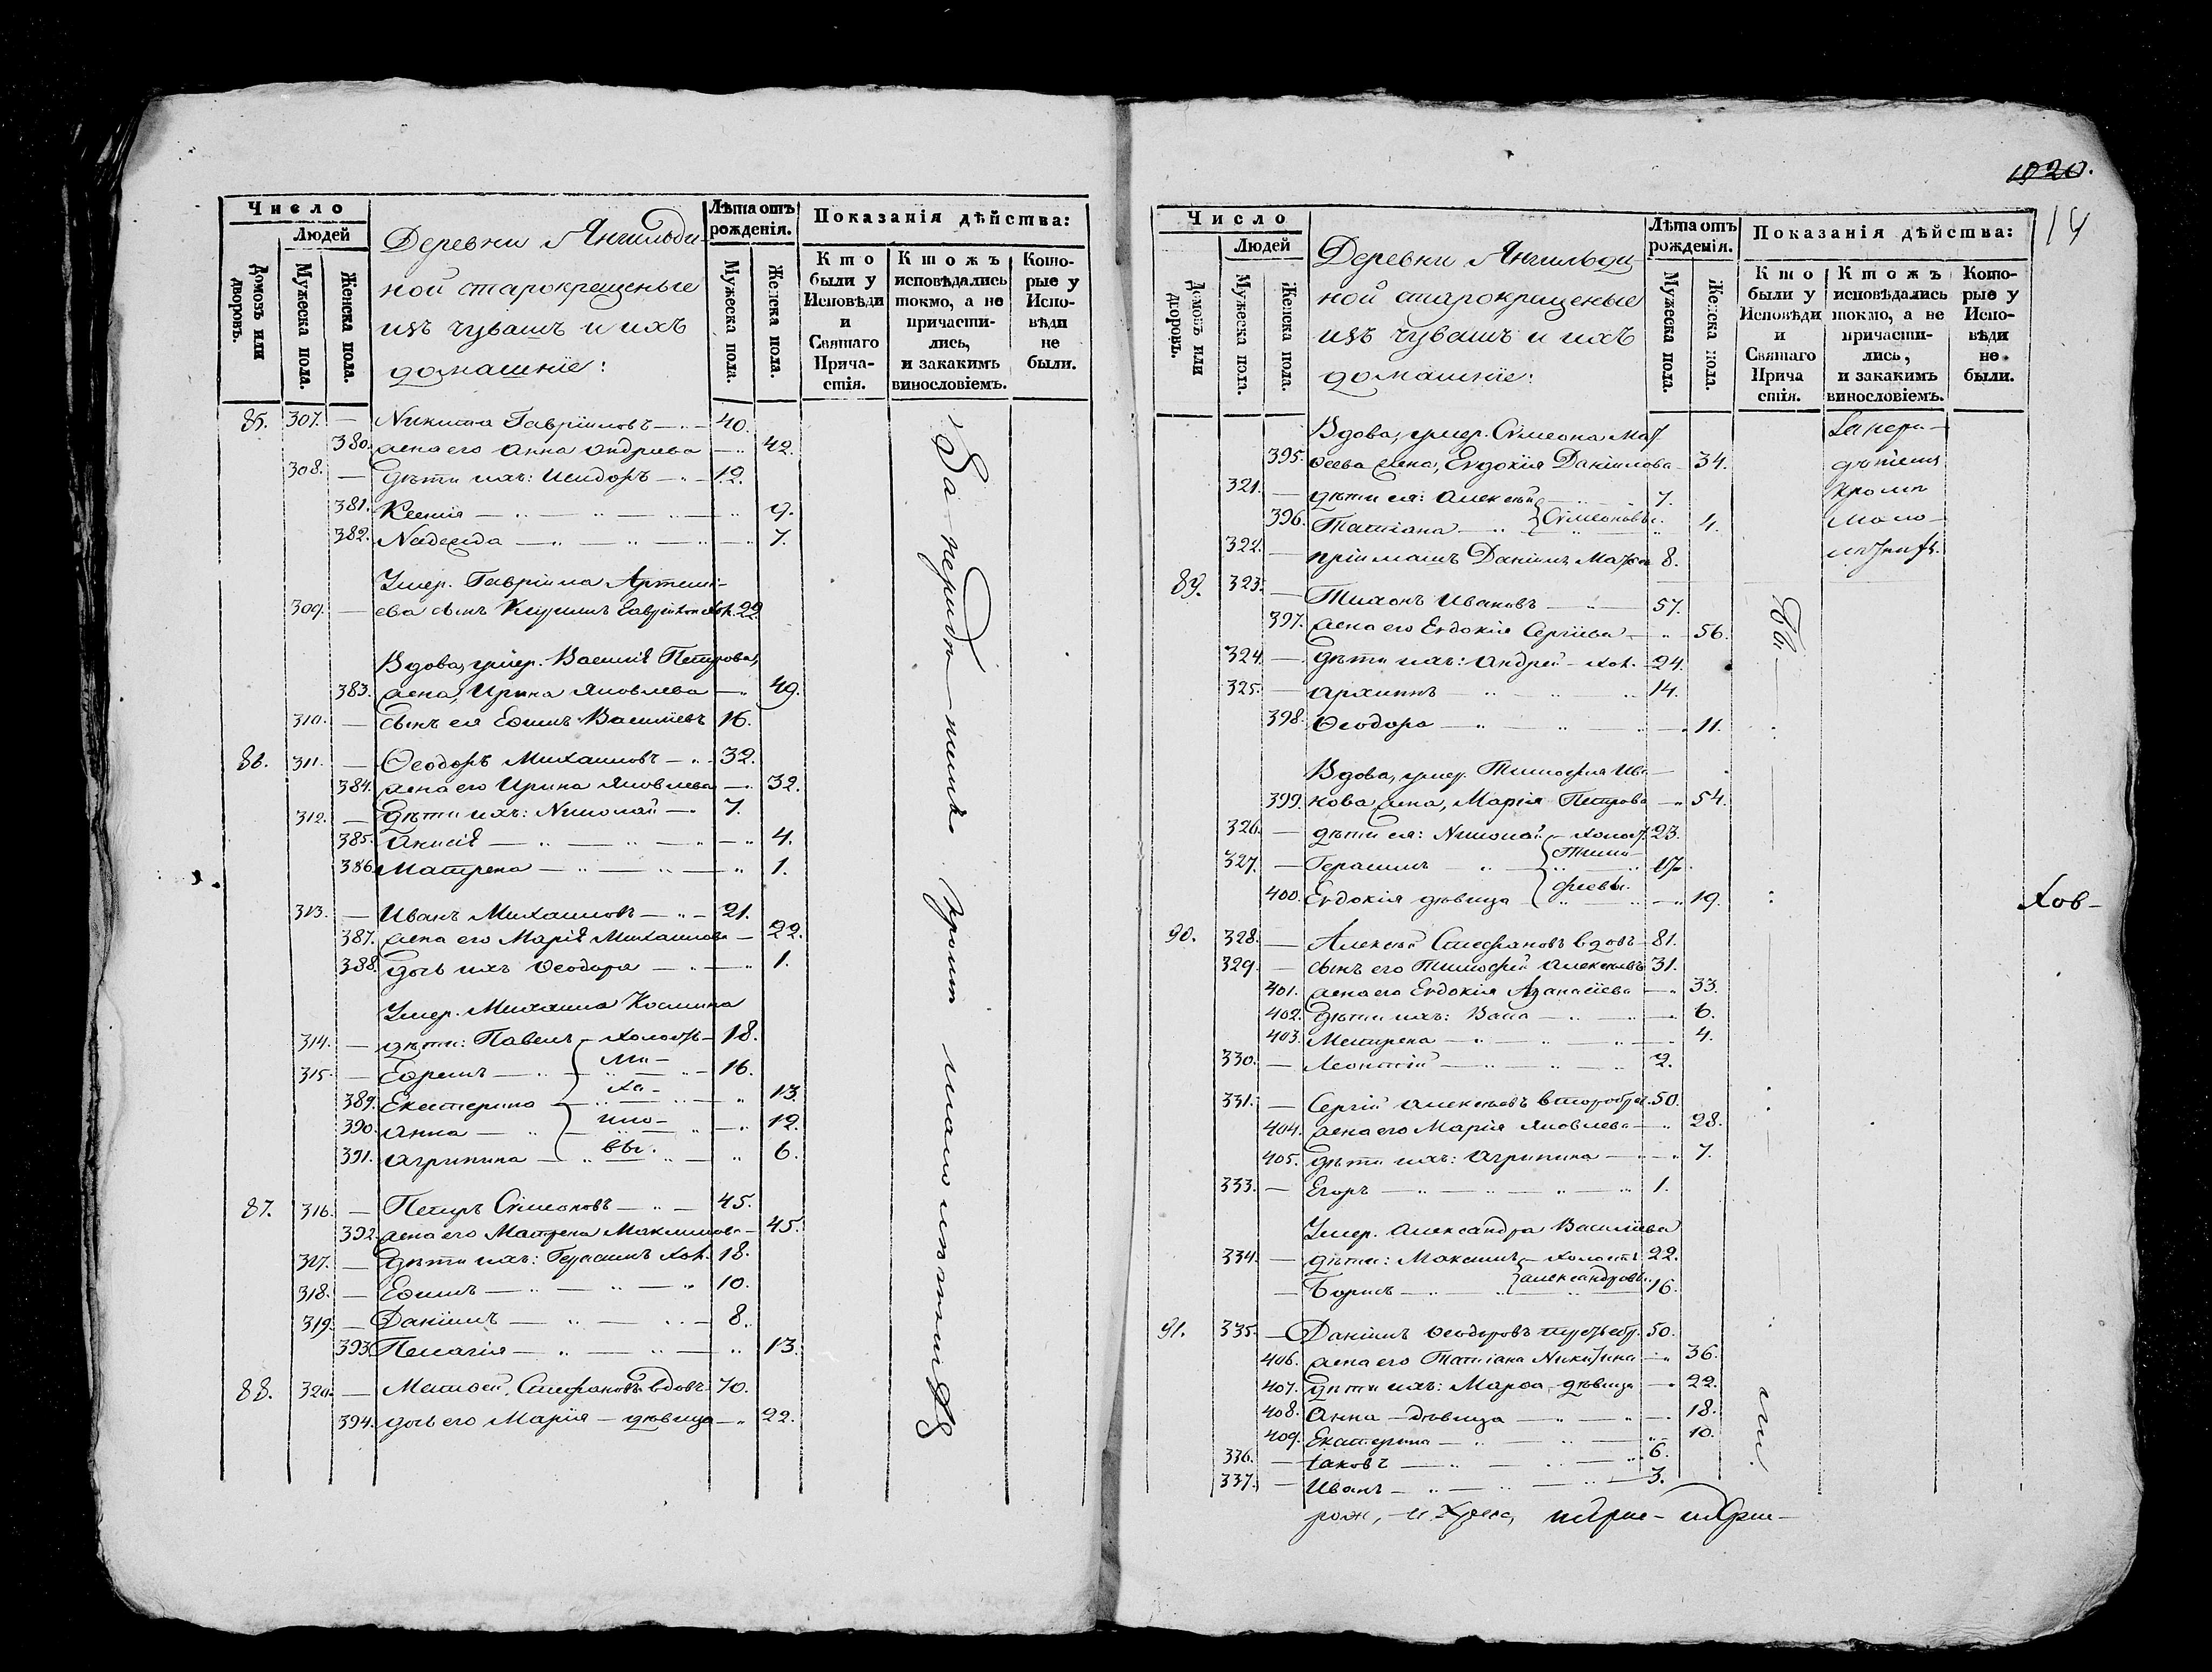 Число
Людей
Домовъ или дворовъ.
Мужеска пола.
Женска пола.
Деревни Янгильди-
ной старокрещеные
изъ чувашъ и ихъ
домашніе:
Лѣта отъ рожденія.
Мужеска пола.
Женска пола.
Показанія дѣйства:
Кто были у Исповѣди и Святаго Прича-стія.
Ктожъ исповѣдались токмо, а не причасти-лись, и закакимъ винословіемъ.
Кото-рые у Испо-вѣди не были.
85. 307. — Никита Гавріиловъ — 40.
380. жена его Анна Андреева — 42.
308. — Дѣти ихъ: Исидоръ — 12.
381. Ксенія — 9.
382. Надежда — 7.
Умер. Гавріила Артемі-
309. — ева сынъ Гавріиловъ хол. 22.
Вдова, умер. Василія Петрова
383. жена, Ирина Яковлева — 49.
310. — Сынъ ея Ефимъ Васильевъ 16.
86. 311. — Ѳеодоръ Михаиловъ — 32.
384. жена его Ирина Яковлева — 32.
312. — Дѣти ихъ: Николай — 7.
385. Анисія — 4.
386. Матрена — 1.
313. — Иванъ Михаиловъ — 21.
387. жена его Марія Михаилова — 22.
388. дочь ихъ Ѳеодора — 1.
Умер. Михаила Космина
314. — дѣти: Павелъ — холостъ — 18.
315. — Ефремъ — Ми- 16.
389. Екатерина — ха- 13.
390. Анна — ило- 12.
391. Агрипина — вы. 6.
87. 316. — Петръ Симеоновъ — 45.
392. жена его Матрена Максимова — 45.
317. — Дѣти ихъ: Герасимъ хол. 18.
318. — Ефимъ — 10.
319. — Даніилъ — 8.
393. Пелагія — 13.
88. 320. — Матвей Стефановъ вдовъ. 70.
394. дочь его Марія — дѣвица — 22.
1820.
14
Число
Людей
Домовъ или дворовъ.
Мужеска пола.
Женска пола.
Деревни Янгильди
ной старокрещеные
изъ чувашъ и ихъ
домашніе:
Лѣта отъ рожденія.
Мужеска пола.
Женска пола.
Показанія дѣйства:
Кто были у Исповѣди и Святаго Прича стія.
Ктожъ исповѣдались токмо, а не причасти-лись, и закакимъ винословіемъ.
Кото-рые у Испо-вѣди не были.
Вдова, умер. Симеона Мат
395. ѳеева жена, Евдокія Даніилова 34.
321. — дѣти ея: Алексѣй 7.
396. Татіана — Симеоновы. 4.
322. — пріимышъ Даніилъ 8.
89. 323. — Тихонъ Ивановъ — 57.
397. жена его Евдокія Сергіева — 56.
324. — дѣти ихъ: Андрей — хол. — 24.
325. — Архипъ — 14.
398. Ѳеодора — 11.
Вдова, умер. Тимофея Ива-
399. нова жена, Марія Петрова — 54.
326. — дѣти ея: Николай — холост 23.
327. — Герасимъ — Тимо- 17.
400. Евдокія дѣвица фіевы. 19.
90. 328. — Алексѣй Стефановъ вдовъ 81.
329. — сынъ его Тимофей Алексѣевъ 31.
401. жена его Евдокія Аѳанасіева — 33.
402. дѣти ихъ: Васа — 6.
403. Матрена — 4.
330. — Леонтій — 2.
331. — Сергій Алексѣевъ второбрач. 50.
404. жена его Марія Яковлева — 28.
405. дѣти ихъ: Агрипина — 7.
333. — Егоръ — 1.
Умер. Александра Василіева
334. — дѣти: Максимъ — холостъ 22.
— Борисъ — Александровы. 16.
91. 335. — Даніилъ Ѳеодоровъ 50.
406. жена его Татіана Никитина — 36.
407. дѣти ихъ: Марѳа, дѣвица — 22.
408. Анна — дѣвица — 18.
409. Екатерина — 10.
336. — Іаковъ — 6.
337. — Иванъ — 3.